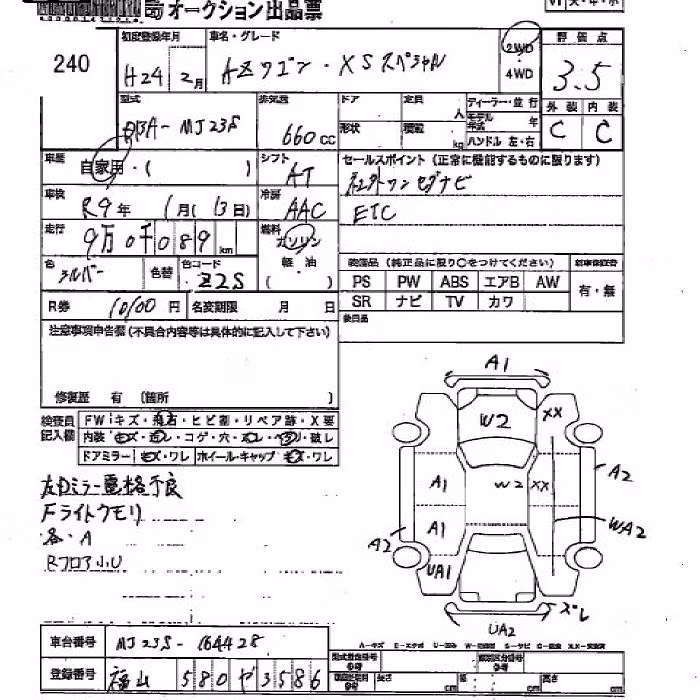 オークション出品票
240
初度登録年月 車名・グレード 2WD・4WD 評価点
H24 2月 AZワゴン・XSスペシャル 3.5
外装 内装
C C
型式 排気量 ドア 定員 人 ディーラー・並行
DBA-MJ23S 660cc 形状 積載 kg モデル年式 年
ハンドル 左・右
車歴 自家用・( ) シフト AT
セールスポイント(正常に機能するものに限ります)
社外ワンセグナビ
ETC
車検 R9年 1月(13日) 冷房 AAC
走行 9万0千089km 燃料 ガソリン
軽油
( )
色 シルバー 色替 色コード Z2S
装備品(純正品に限り○をつけてください) 新車保証書
PS PW ABS エアB AW 有・無
SR ナビ TV カワ
R券 10100円 名変期限 月 日
後日品
注意事項申告欄(不具合内容等は具体的に記入して下さい)
修復歴 有(箇所 )
検査員記入欄
FWキズ・飛石・ヒビ割・リペア跡・X要
内装 キズ・汚レ・コゲ・穴・破レ
ドアミラー キズ・ワレ ホイール・キャップ キズ・ワレ
左Dミラー電格不良
Fライトクモリ
各・A
RフロアJ.U
A1
W2
XX
A1
W2
XX
A2
A1
WA2
A2
UA1
ズレ
UA2
車台番号 MJ23S-164428
登録番号 福山 580 ヤ3586
型式指定番号 類別区分番号
長さ cm 幅 cm 高さ cm